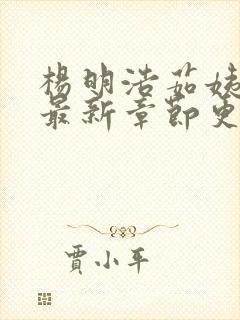 楊明浩茹姨
最新章節更
賈小平